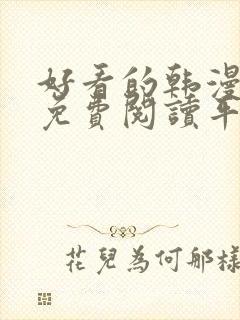 好看的韩漫
免費閱讀平
花兒為何那樣